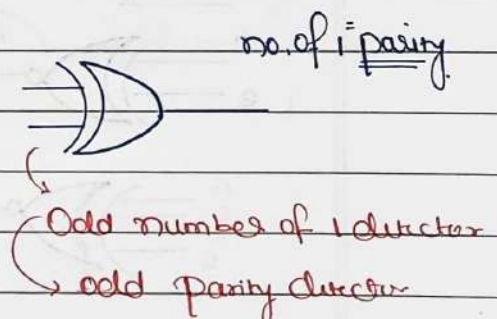 no. of 1 = parity.
Odd number of 1 detector
odd parity detector